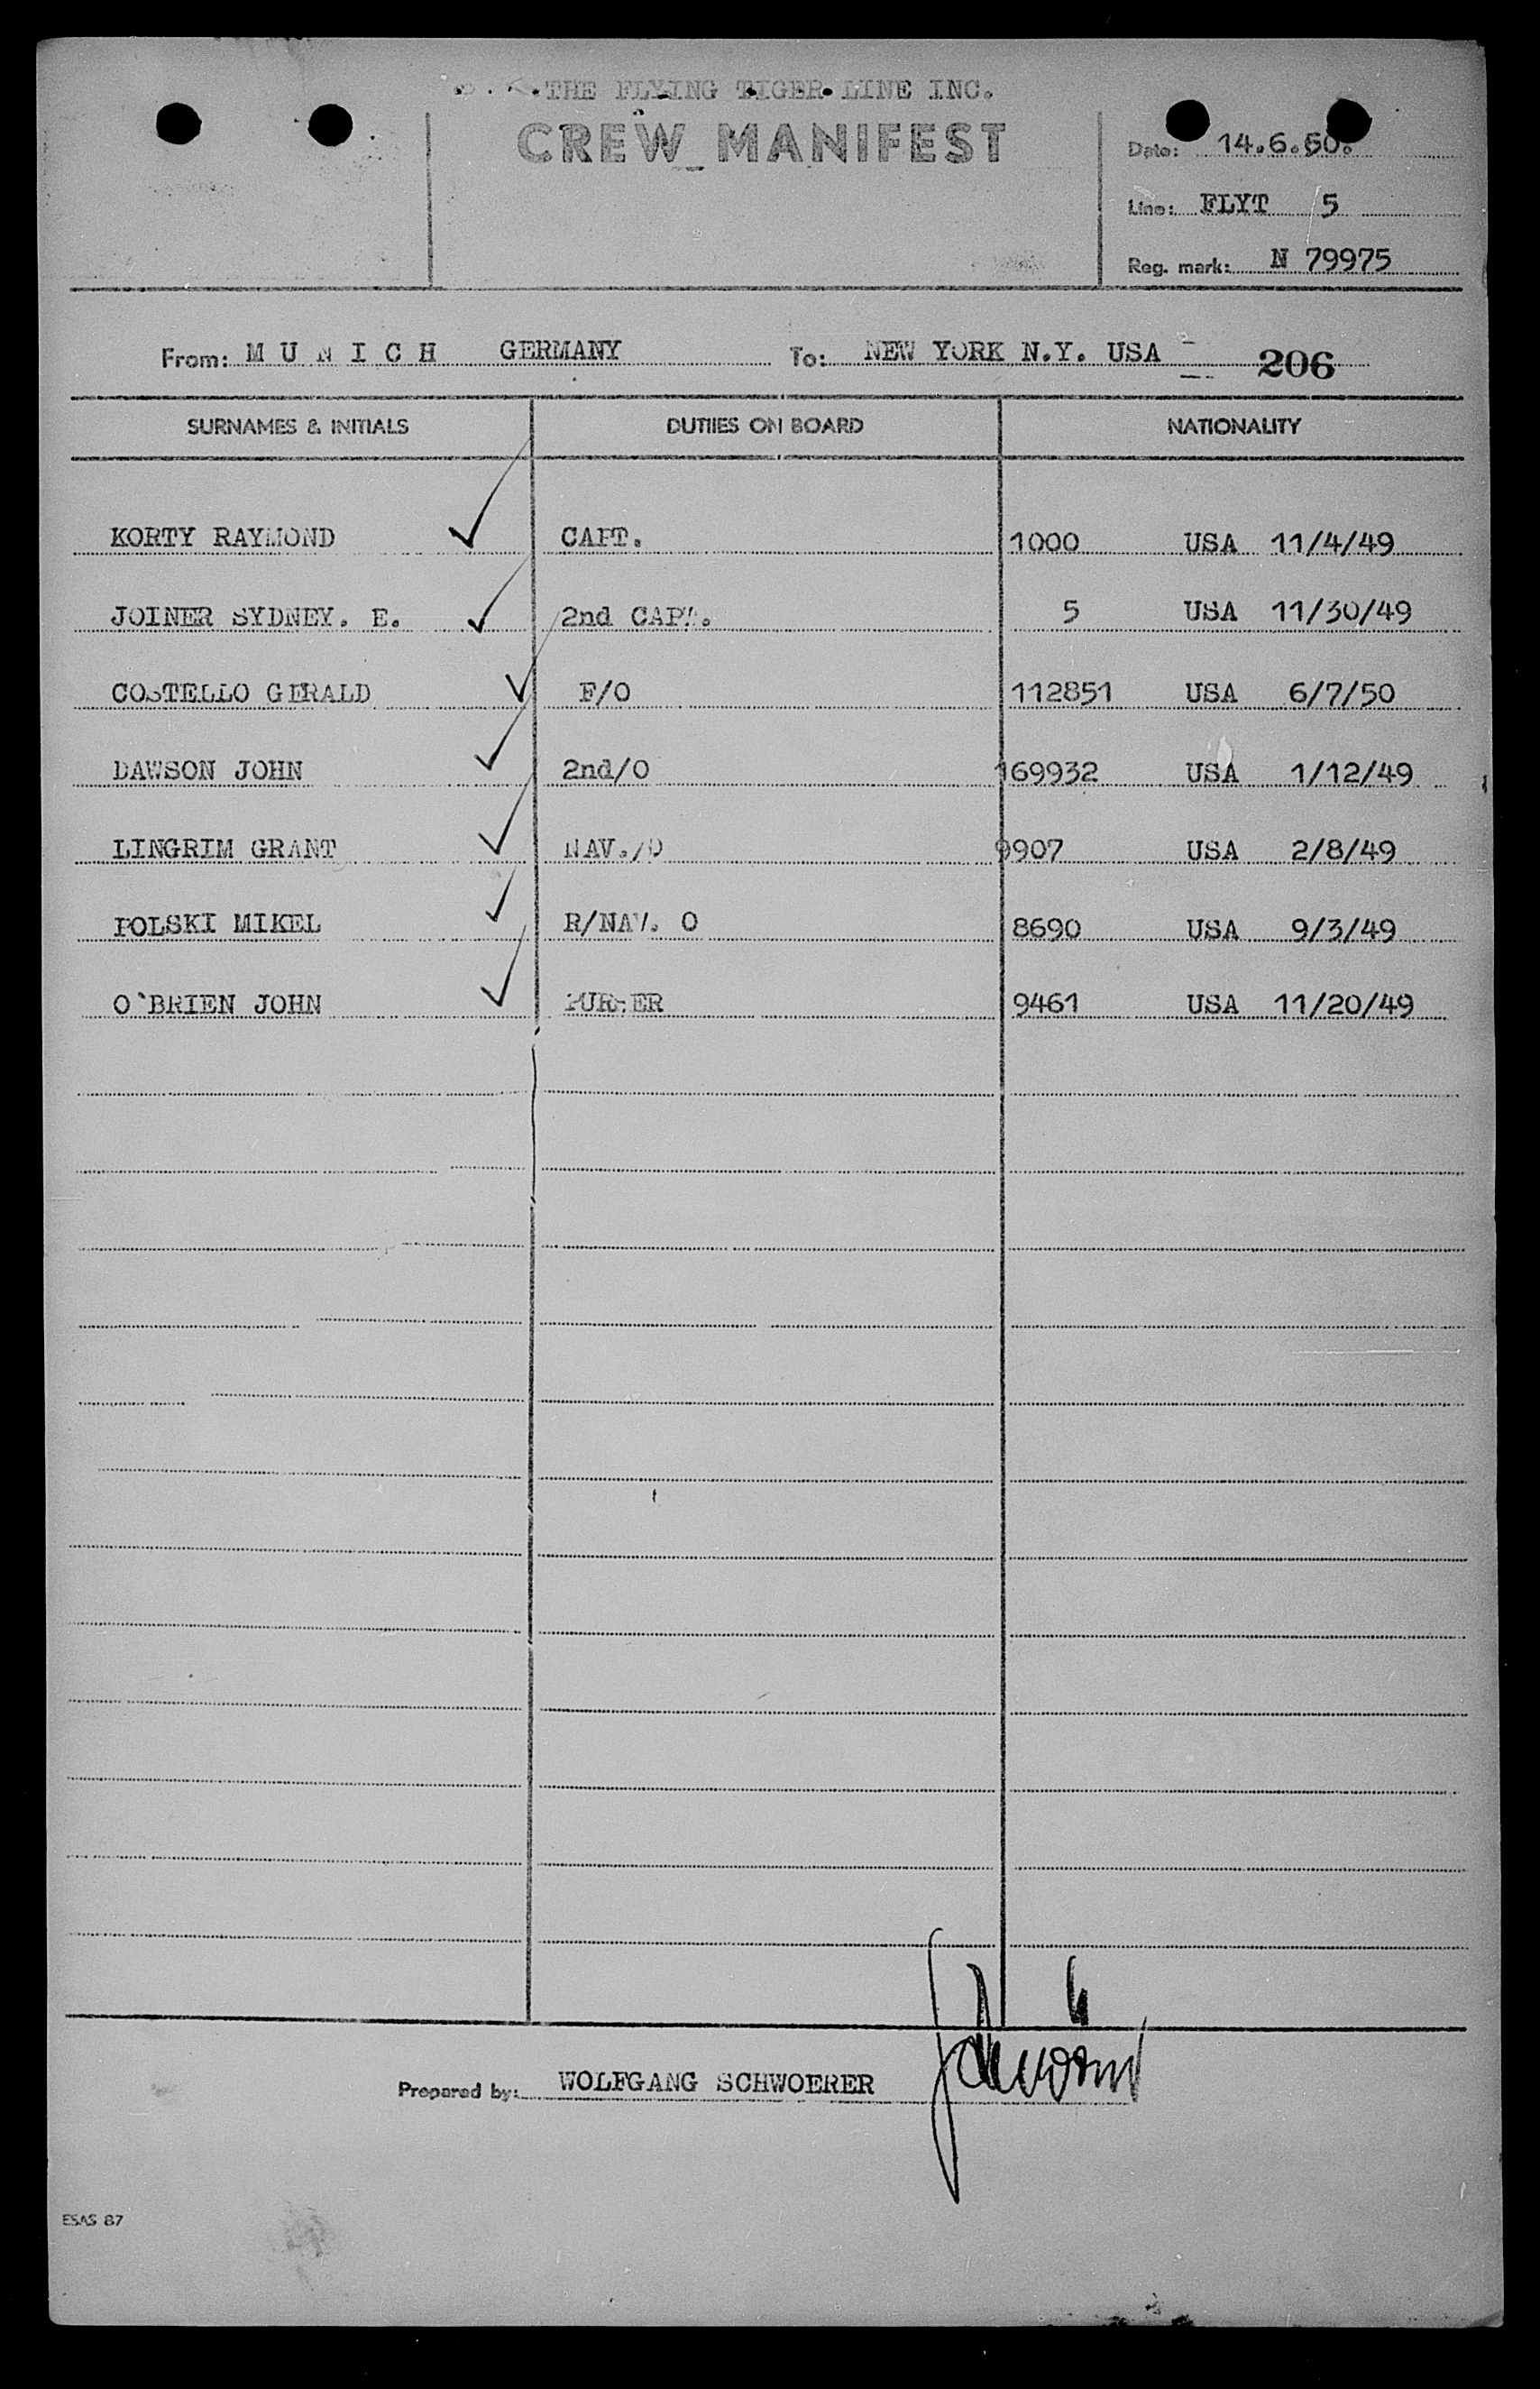 THE FLYING TIGER LINE INC.
CREW MANIFEST
Date: 14.6.50.
Line: FLYT 5
Reg. mark: N 79975
From: M U N I C H GERMANY To: NEW YORK N.Y. USA 206
SURNAMES & INITIALS DUTIES ON BOARD NATIONALITY
KORTY RAYMOND CAPT. 1000 USA 11/4/49
JOINER SYDNEY. E. 2nd CAPT. 5 USA 11/30/49
COSTELLO GERALD F/O 112851 USA 6/7/50
DAWSON JOHN 2nd/O 169932 USA 1/12/49
LINGRIM GRANT NAV./O 9907 USA 2/8/49
POLSKI MIKEL R/NAV. O 8690 USA 9/3/49
O`BRIEN JOHN PURSER 9461 USA 11/20/49
Prepared by: WOLFGANG SCHWOERER
ESAS 87